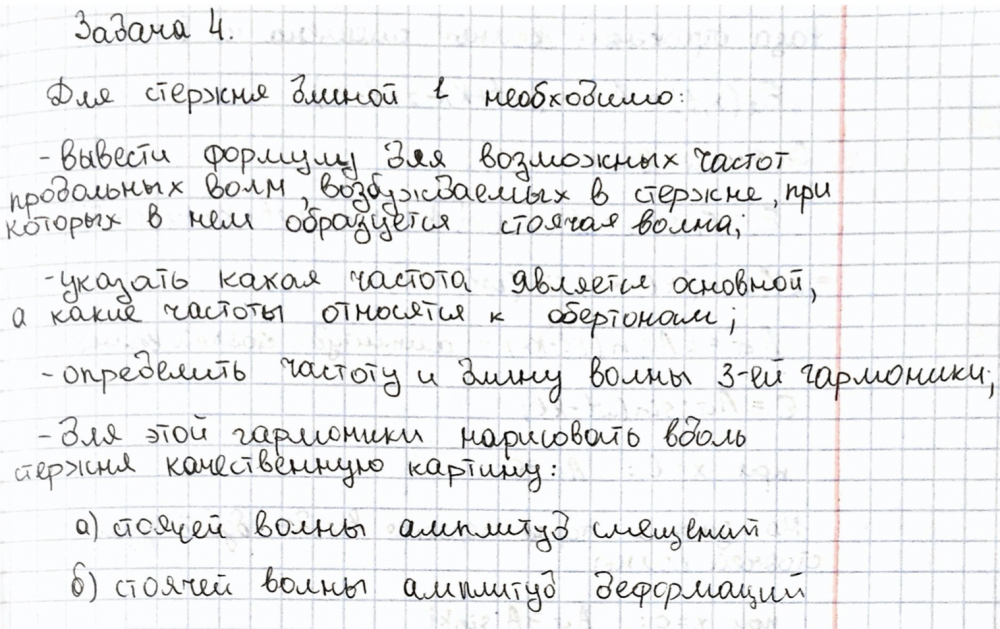 Задача 4.
Для стержня длиной l необходимо:
- вывести формулу для возможных частот
продольных волн, возбуждаемых в стержне, при
которых в нем образуется стоячая волна;
- указать какая частота является основной,
а какие частоты относятся к обертонам;
- определить частоту и длину волны 3-ей гармоники;
- для этой гармоники нарисовать вдоль
стержня качественную картину:
а) стоячей волны амплитуд смещений
б) стоячей волны амплитуд деформаций